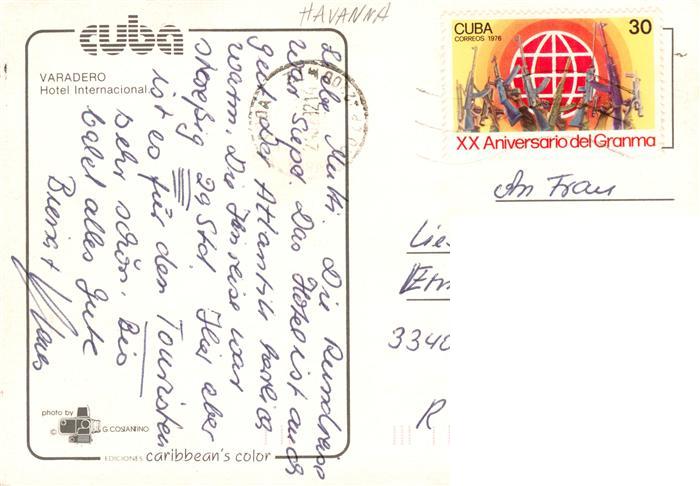 HAVANNA
cuba
VARADERO
Hotel Internacional.
Liebe Mutti. Die Rundreise
war super. Das Hotel ist auch
gut. Der Atlantik herrlich
warm. Die Hinreise war
stressig 29 Std. Hier aber
ist es für den Touristen
sehr schön. Bis
bald alles Gute
Bienst
Klaus
photo by
© G. COSTANTINO
EDICIONES caribbean's color
CUBA
CORREOS 1976
30
XX Aniversario del Granma
An Frau
Lies
Etn
3340
R